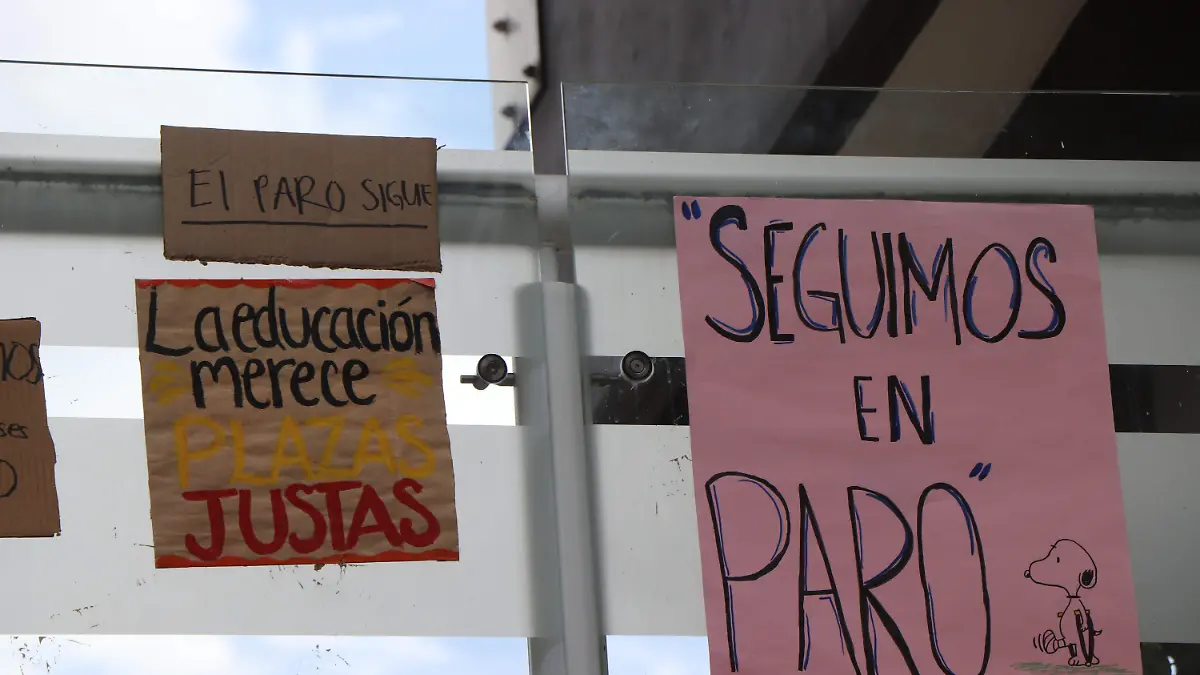 El PARO SIGUE
La educación
merece
PLAZAS
JUSTAS
"SEGUIMOS
EN
PARO"